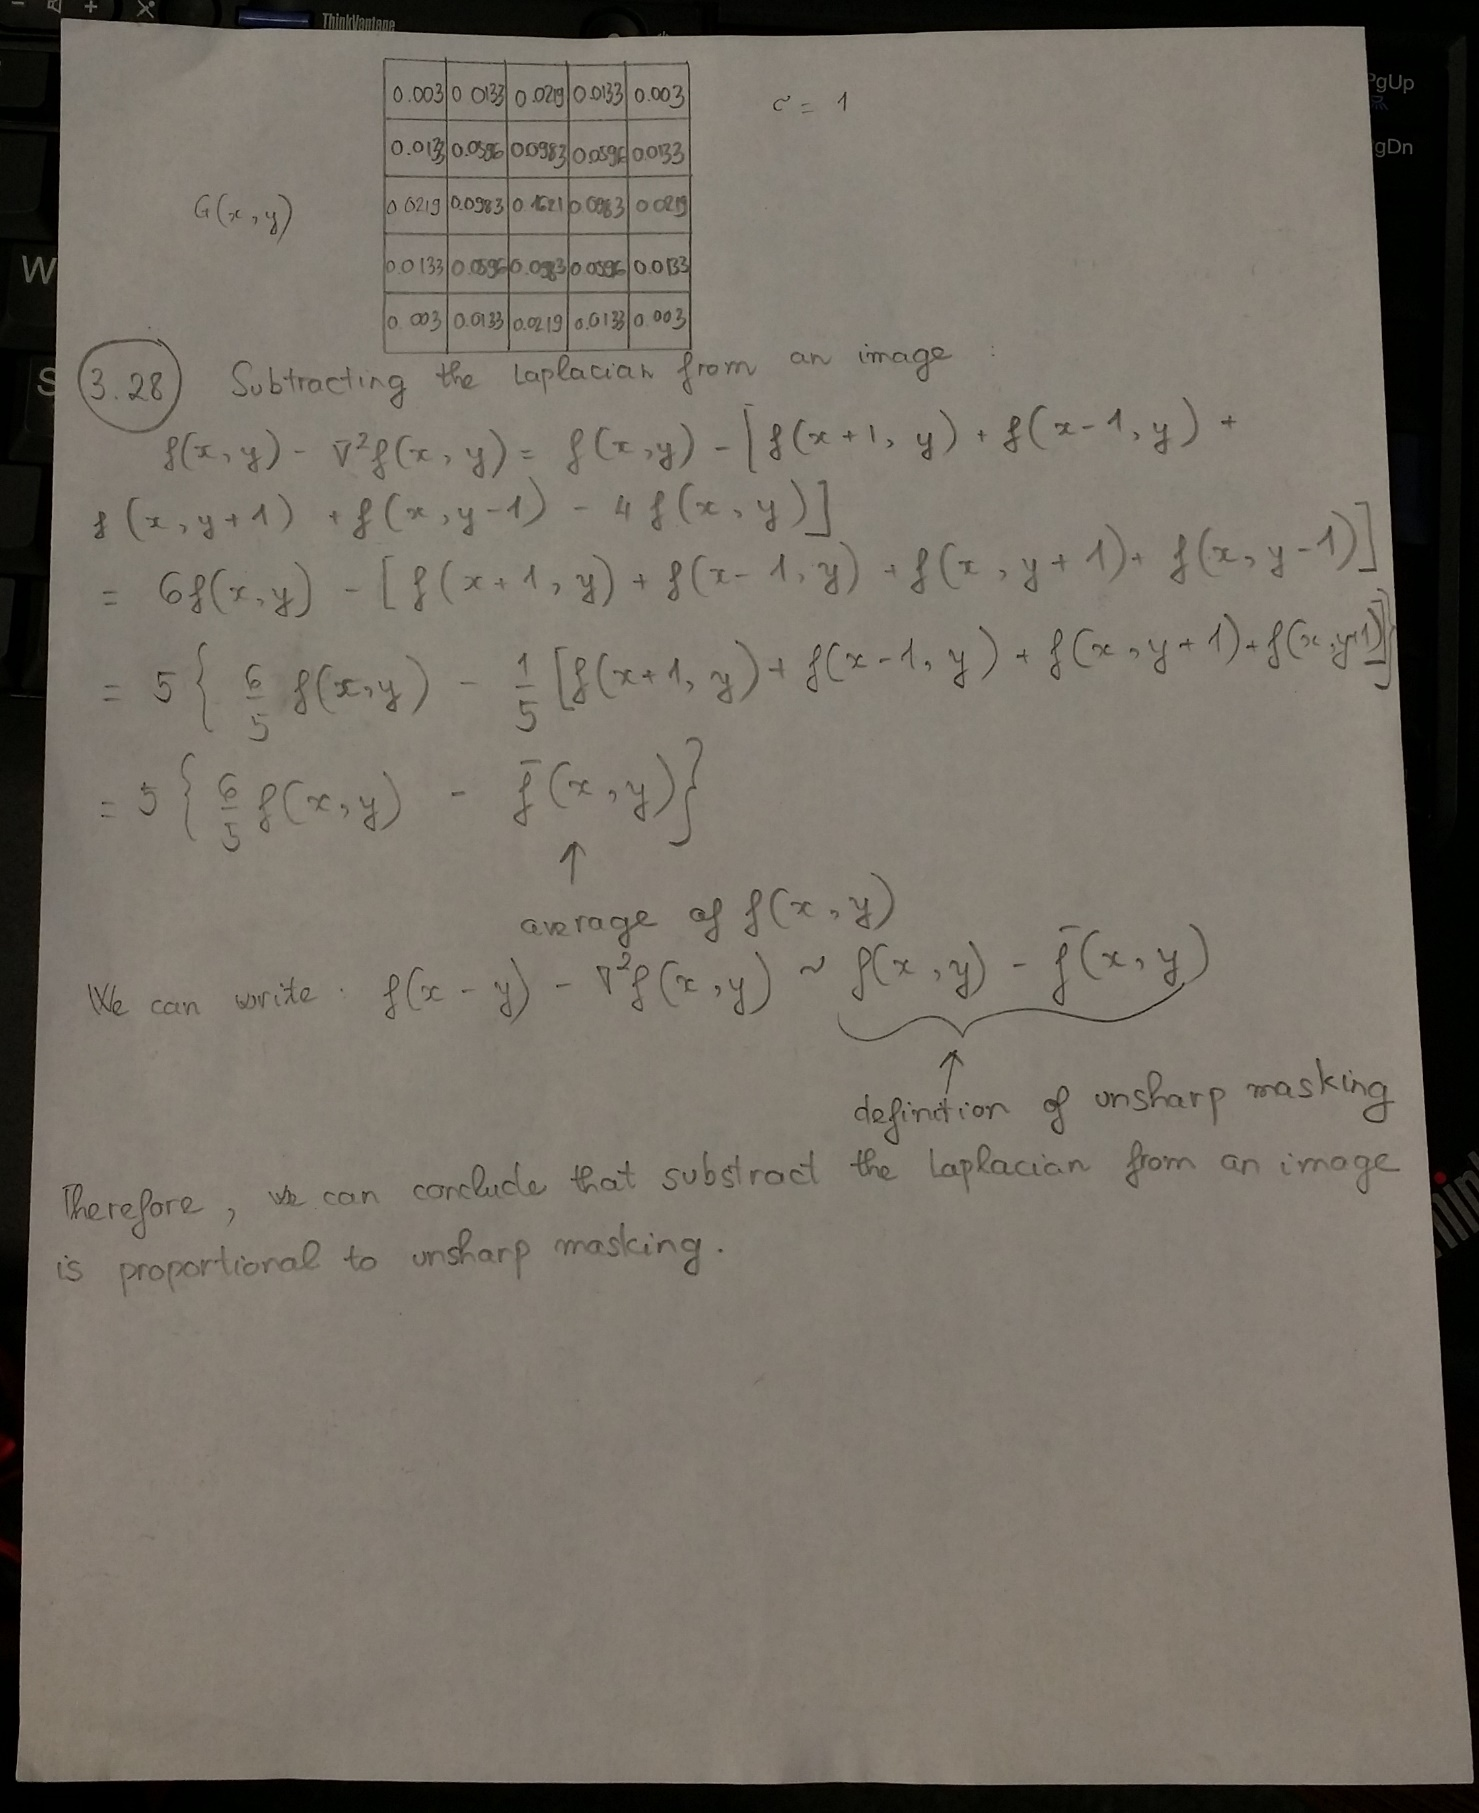 ThinkVantage
PgUp
PgDn
W
S
0.003 0.0133 0.0219 0.0133 0.003
σ = 1
0.0133 0.0596 0.0983 0.0596 0.0133
G(x,y)
0.0219 0.0983 0.1621 0.0983 0.0219
0.0133 0.0596 0.0983 0.0596 0.0133
0.003 0.0133 0.0219 0.0133 0.003
3.28 Subtracting the Laplacian from an image :
f(x,y) - ∇²f(x,y) = f(x,y) - [f(x+1, y) + f(x-1, y) +
f(x,y+1) + f(x,y-1) - 4f(x,y)]
= 6f(x,y) - [f(x+1, y) + f(x-1, y) + f(x, y+1) + f(x, y-1)]
= 5{ 6/5 f(x,y) - 1/5 [f(x+1, y) + f(x-1, y) + f(x, y+1) + f(x,y-1)]}
= 5{ 6/5 f(x,y) - f̄(x,y)}
↑
average of f(x,y)
We can write : f(x-y) - ∇²f(x,y) ~ f(x,y) - f̄(x,y)
↑
definition of unsharp masking
Therefore, we can conclude that substract the Laplacian from an image
is proportional to unsharp masking.